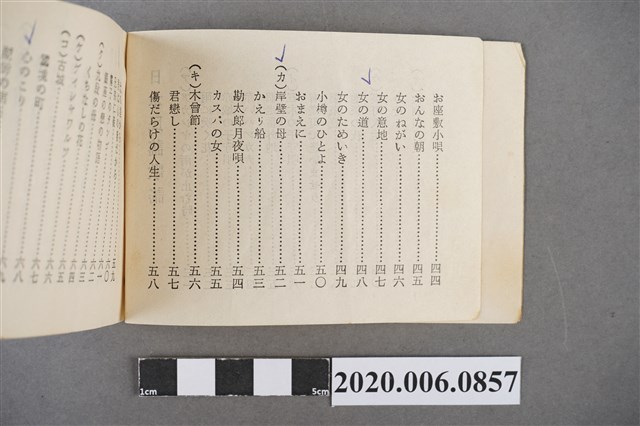 お座敷小唄……四四
おんなの朝……四五
女のねがい……四六
女の意地……四七
女の道……四八
女のためいき……四九
小樽のひとよ……五〇
おまえに……五一
(カ)岸壁の母……五二
かえり船……五三
勘太郎月夜唄……五四
カスバの女……五五
(キ)木曾節……五六
君恋し……五七
傷だらけの人生……五八
五九
六〇
六一
六二
六三
六四
(コ)古城……六五
六六
六七
心のこり……六八
六九
1cm
5cm
2020.006.0857